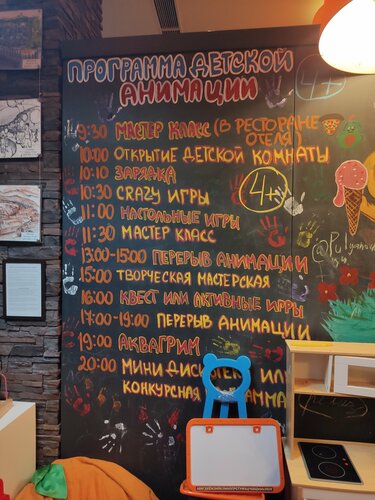 ПРОГРАММА ДЕТСКОЙ
АНИМАЦИИ
4+
9:30 МАСТЕР КЛАСС (В РЕСТОРАНЕ
ОТЕЛЯ)
10:00 ОТКРЫТИЕ ДЕТСКОЙ КОМНАТЫ
10:10 ЗАРЯДКА
10:30 CRAZY ИГРЫ
4+
11:00 НАСТОЛЬНЫЕ ИГРЫ
11:30 МАСТЕР КЛАСС
13:00-15:00 ПЕРЕРЫВ АНИМАЦИИ
15:00 ТВОРЧЕСКАЯ МАСТЕРСКАЯ
16:00 КВЕСТ ИЛИ АКТИВНЫЕ ИГРЫ
17:00-19:00 ПЕРЕРЫВ АНИМАЦИИ
19:00 АКВАГРИМ
20:00 МИНИ ДИСКОТЕКА ИЛИ
КОНКУРСНАЯ ПРОГРАММА